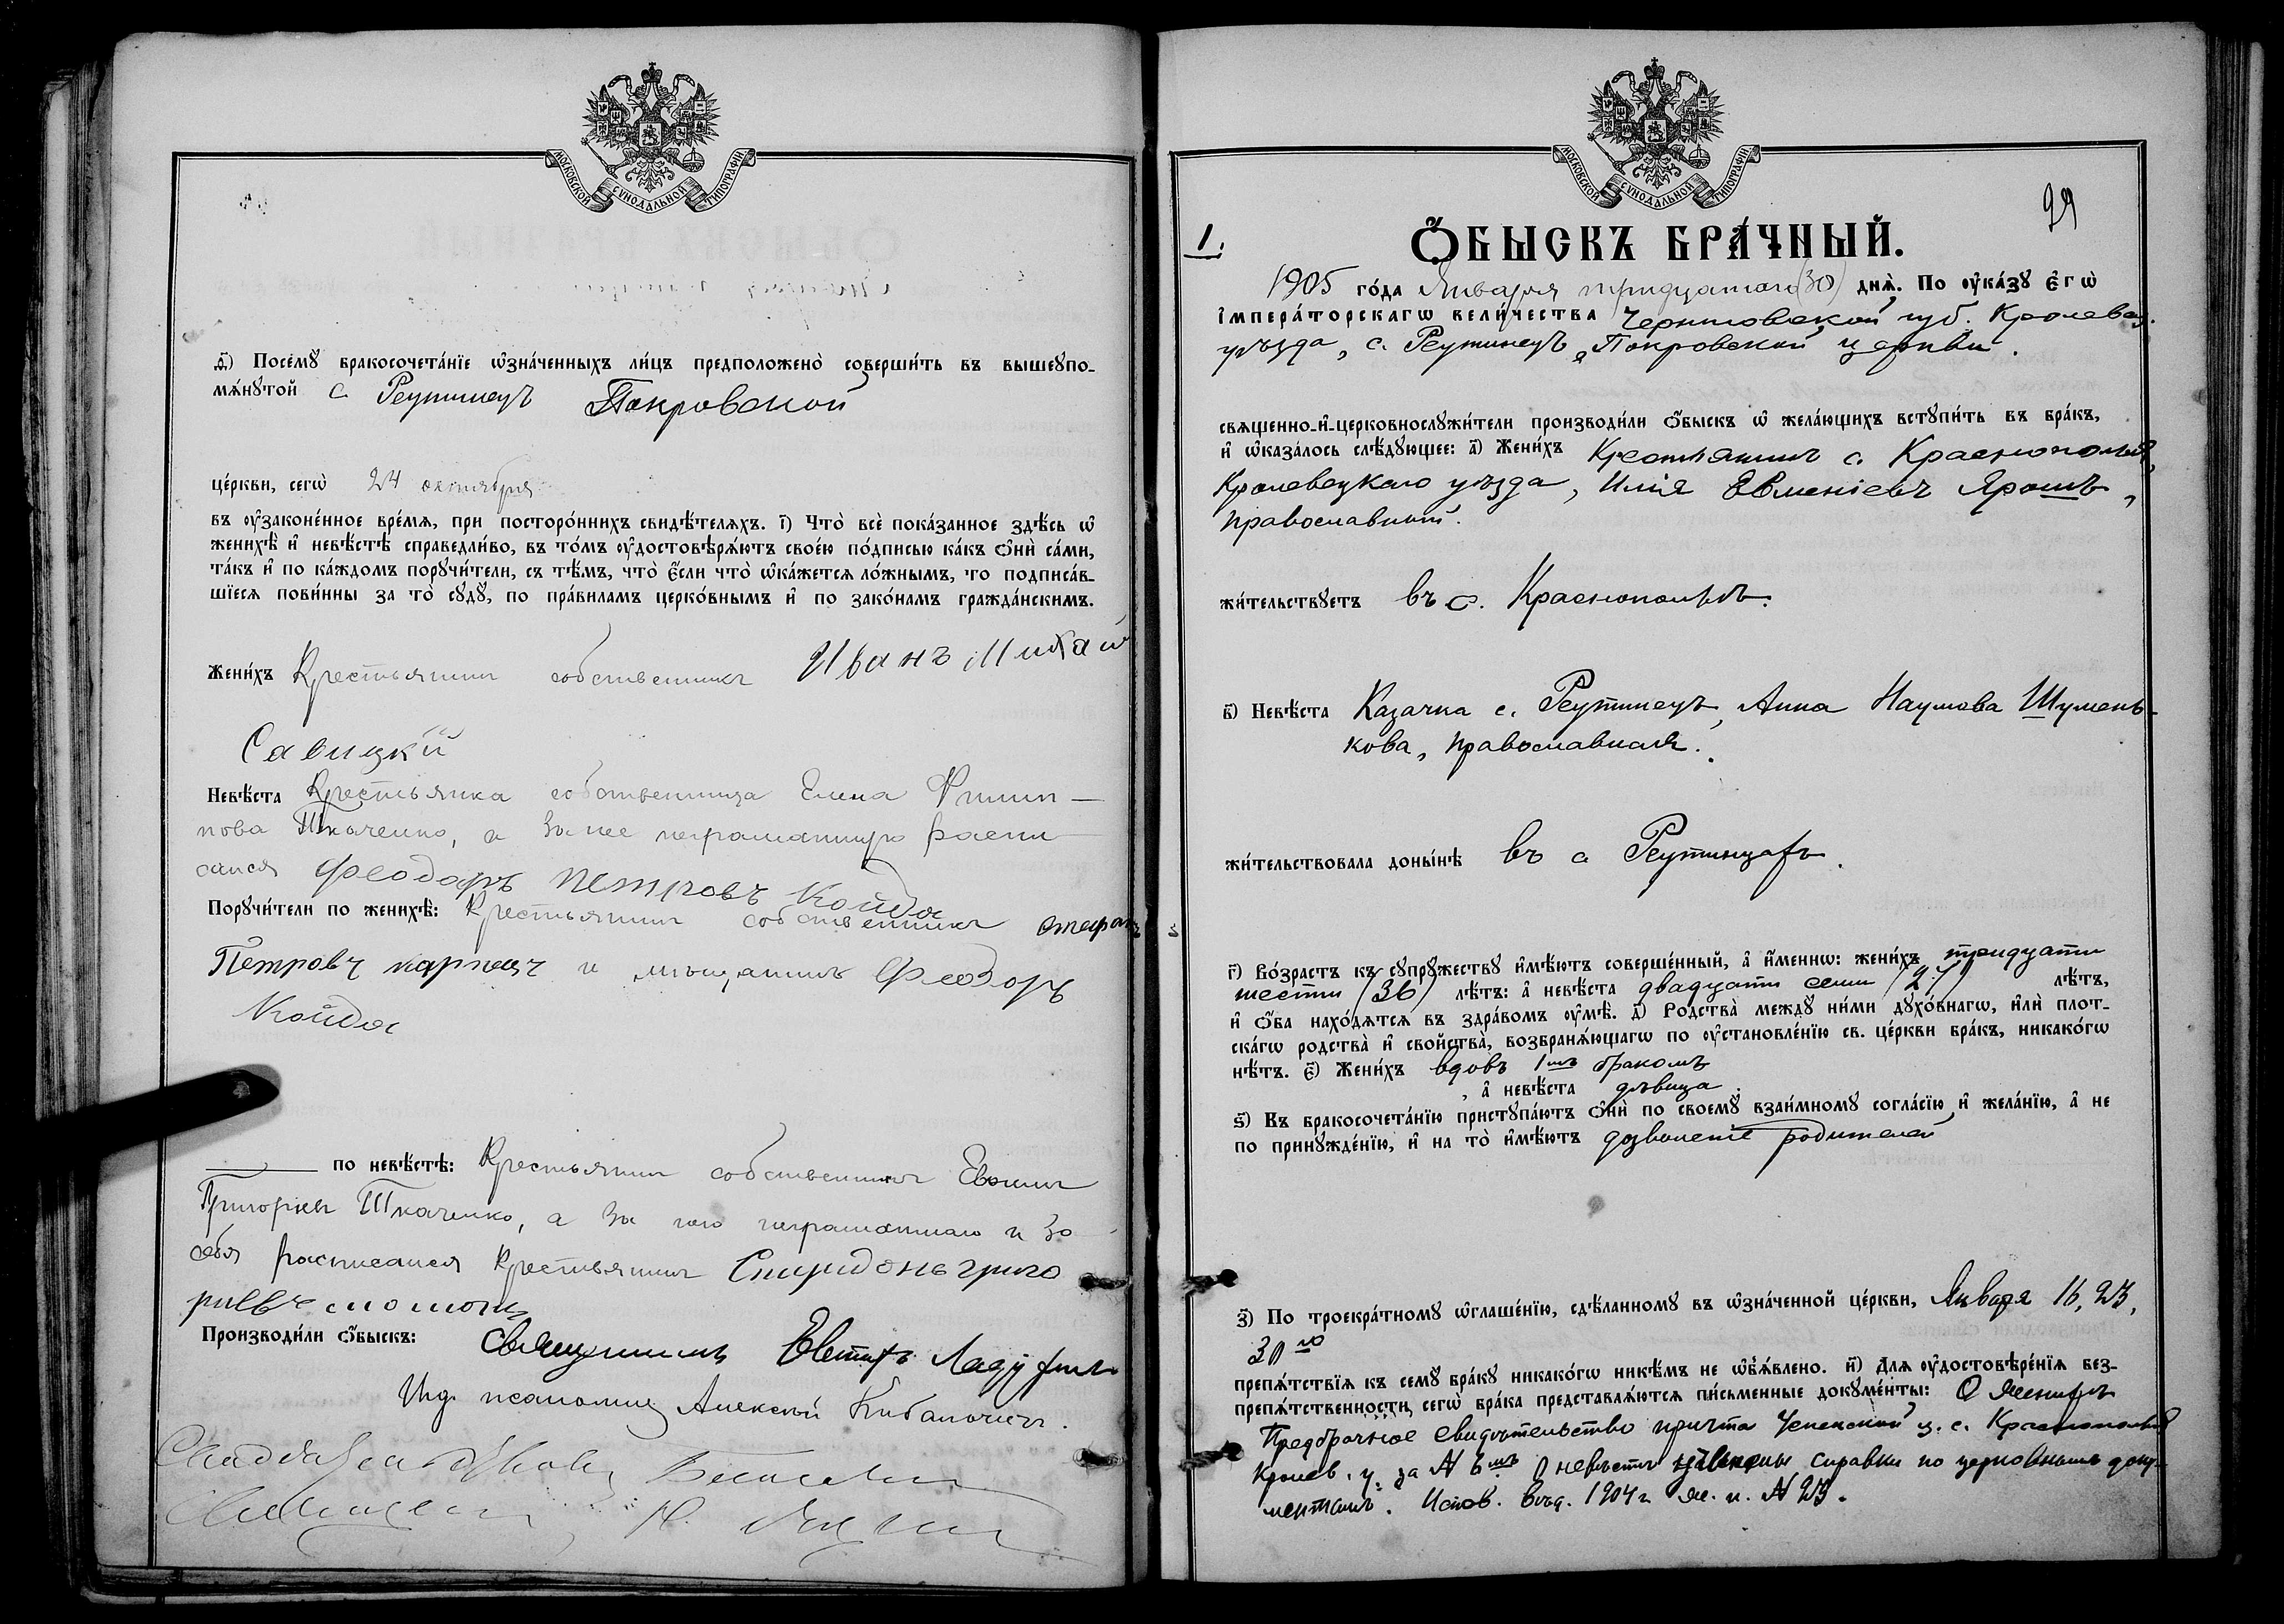 МОСКОВСКОЙ СѴНОДАЛЬНОЙ ТИПОГРАФІИ.
д҃) Посемꙋ бракосочетанїе ѡзначенныхъ лицъ предположено совершить въ вышеꙋпо-
мѧнꙋтой с. Реутинецъ Покровской
церкви, сегѡ 24 октября
въ ᲂузаконенное времѧ, при постороннихъ свидѣтелѧхъ. і҃) Что все показанное здѣсь ѡ
женихѣ и невѣстѣ справедливо, въ томъ ᲂудостовѣрѧютъ своею подписью какъ ѻни сами,
такъ и по каждомъ порꙋчители, съ тѣмъ, что если что ѡкажетсѧ ложнымъ, то подписав-
шїесѧ повинны за то сꙋдꙋ, по правиламъ церковнымъ и по законамъ гражданскимъ.
Женихъ Крестьянинъ собственникъ Иванъ Михай
Савицкій
Невѣста Крестьянка собственница Елена Филип-
пова Ткаченко, а за нее неграмотную распи
сался Феодоръ Петровъ Койда
Порꙋчители по женихѣ: Крестьянинъ собственникъ
Петровъ карпецъ и мѣщанинъ Феодоръ
Койда
по невѣстѣ: Крестьянинъ собственникъ
Григорьевъ Ткаченко, а за него неграмотнаго и за
себя расписался Крестьянинъ Спиридонъ григо
риевъ
Производили ѻбыскъ: Священникъ Евтихъ
Ид. псаломщ. Алексѣй
МОСКОВСКОЙ СѴНОДАЛЬНОЙ ТИПОГРАФІИ.
29
1.
ѺБЫСКЪ БРАЧНЫЙ.
1905 года Января тридцатаго (30) днѧ. По ᲂуказꙋ егѡ
императорскагѡ величества Черниговской губ. Кролевец.
уѣзда, с. Реутинецъ, Покровской церкви.
свѧщенно-и-церковнослꙋжители производили ѻбыскъ ѡ желающихъ встꙋпить въ бракъ,
и ѡказалось слѣдꙋющее: а҃) Женихъ Крестьянинъ с. Краснополья,
Кролевецкаго уѣзда, Илія Евменіевъ Ярошъ,
православный.
жительствꙋетъ въ с. Краснопольѣ.
в҃) Невѣста Казачка с. Реутинецъ, Анна Наумова Шумень-
кова, православная.
жительствовала донынѣ въ с Реутинцахъ.
г҃) Возрастъ къ сꙋпрꙋжествꙋ имѣютъ совершенный, а именнѡ: женихъ тридцати
шести (36) лѣтъ: а невѣста двадцати семи (27) лѣтъ,
и ѻба находѧтсѧ въ здравомъ ᲂумѣ. д҃) Родства междꙋ ними дꙋховнагѡ, или плот-
скагѡ родства и свойства, возбранѧющагѡ по ᲂустановленїю св. церкви бракъ, никакогѡ
нѣтъ. е҃) Женихъ вдовъ 1мъ бракомъ
, а невѣста дѣвица.
ѕ҃) Къ бракосочетанїю пристꙋпаютъ ѻни по своемꙋ взаимномꙋ согласїю и желанїю, а не
по принꙋжденїю, и на то имѣютъ дозволеніе родителей
з҃) По троекратномꙋ ѡглашенїю, сдѣланномꙋ въ ѡзначенной церкви, Января 16, 23,
30го
препѧтствїѧ къ семꙋ бракꙋ никакогѡ никѣмъ не ѡбъѧвлено. и҃) Длѧ ᲂудостовѣренїѧ без-
препѧтственности сегѡ брака представлѧютсѧ письменные докꙋменты: О женихѣ
Предбрачное свидѣтельство причта Успенской ц. с. Краснополья
Кролев. у. за № 6мъ О невѣстѣ справки по церковнымъ доку-
ментамъ. Испов. вѣд. 1904 г. ж. п. № 23.